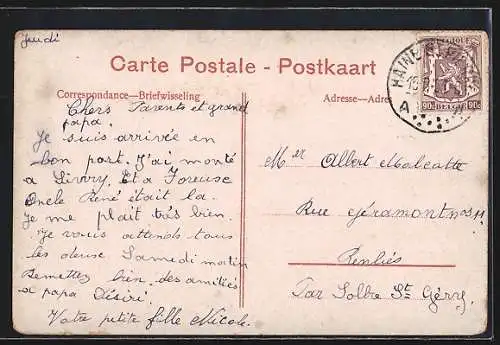 Jeudi
Carte Postale - Postkaart
Correspondance—Briefwisseling
Adresse—Adre
Chers Parents et grand
papa.
Je suis arrivée en
bon port. J'ai monté
a Sivry. Et a
Oncle René était la.
Je me plait trés bien.
Je vous attends tous
les deuse Samedi matin
Remettez bien des amitiés
a papa Désiré.
Votre petite fille Nicole.
BELGIQUE
90c BELGIE 90c
HAINE
A
Mer Albert Malcatte
Rue Géramont
Renlies
Par Solbre St Géry.